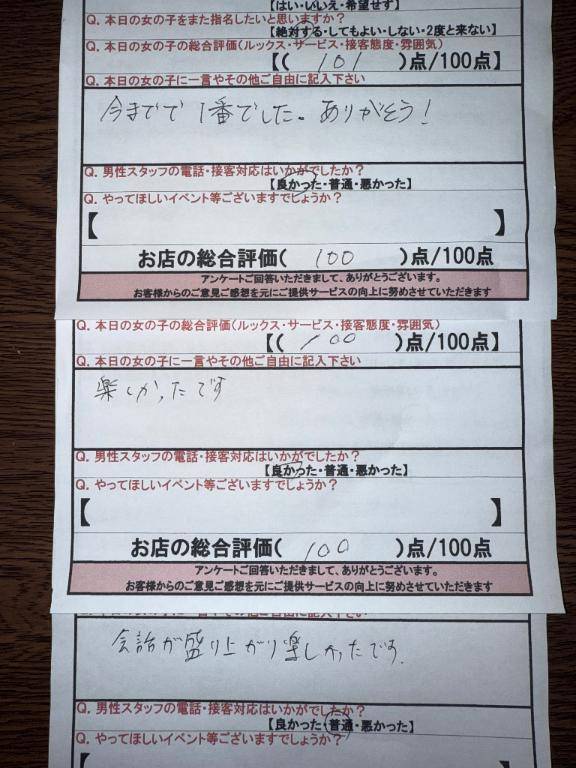 【はい・いいえ・希望せず】
Q. 本日の女の子をまた指名したいと思いますか？
【絶対する・してもよい・しない・2度と来ない】
Q. 本日の女の子の総合評価(ルックス・サービス・接客態度・雰囲気)
【( 101 )点/100点】
Q. 本日の女の子に一言やその他ご自由に記入下さい
今までで1番でした。ありがとう！
Q. 男性スタッフの電話・接客対応はいかがでしたか？
【良かった・普通・悪かった】
Q. やってほしいイベント等ございますでしょうか？
【 】
お店の総合評価( 100 )点/100点
アンケートご回答いただきまして、ありがとうございます。
お客様からのご意見ご感想を元にご提供サービスの向上に努めさせていただきます
Q. 本日の女の子の総合評価(ルックス・サービス・接客態度・雰囲気)
【( 100 )点/100点】
Q. 本日の女の子に一言やその他ご自由に記入下さい
楽しかったです
Q. 男性スタッフの電話・接客対応はいかがでしたか？
【良かった・普通・悪かった】
Q. やってほしいイベント等ございますでしょうか？
【 】
お店の総合評価( 100 )点/100点
アンケートご回答いただきまして、ありがとうございます。
お客様からのご意見ご感想を元にご提供サービスの向上に努めさせていただきます
会話が盛り上がり楽しかったです。
Q. 男性スタッフの電話・接客対応はいかがでしたか？
【良かった・普通・悪かった】
Q. やってほしいイベント等ございますでしょうか？